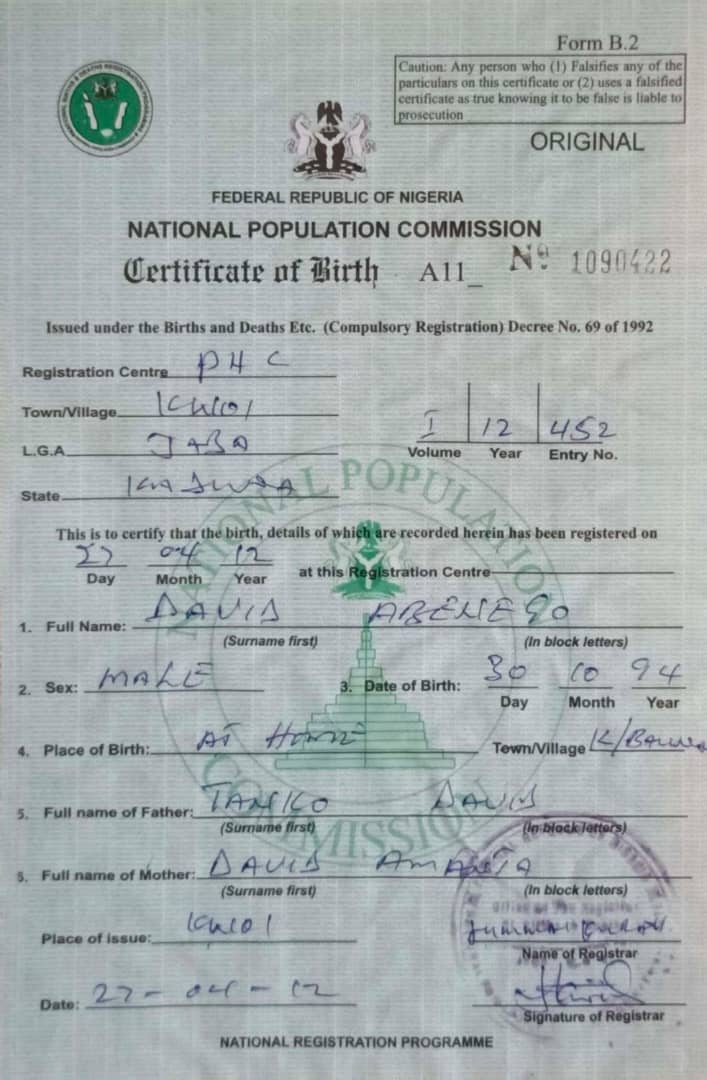 Form B.2
Caution: Any person who (1) Falsifies any of the
particulars on this certificate or (2) uses a falsified
certificate as true knowing it to be false is liable to
prosecution
ORIGINAL
FEDERAL REPUBLIC OF NIGERIA
NATIONAL POPULATION COMMISSION
Certificate of Birth A11_ Nº 1090422
Issued under the Births and Deaths Etc. (Compulsory Registration) Decree No. 69 of 1992
Registration Centre PHC
Town/Village KWOI
L.G.A JABA
State KADUNA
I 12 452
Volume Year Entry No.
This is to certify that the birth, details of which are recorded herein has been registered on
27 04 12
Day Month Year at this Registration Centre
1. Full Name: DAVID ABENEGO
(Surname first) (In block letters)
2. Sex: MALE 3. Date of Birth: 30 10 94
Day Month Year
4. Place of Birth: AT HOME Town/Village
5. Full name of Father: TANKO DAVID
(Surname first) (In block letters)
5. Full name of Mother: DAVID
(Surname first) (In block letters)
Place of issue: KWOI
Name of Registrar
Date: 27-04-12
Signature of Registrar
NATIONAL REGISTRATION PROGRAMME
NATIONAL POPULATION
COMMISSION